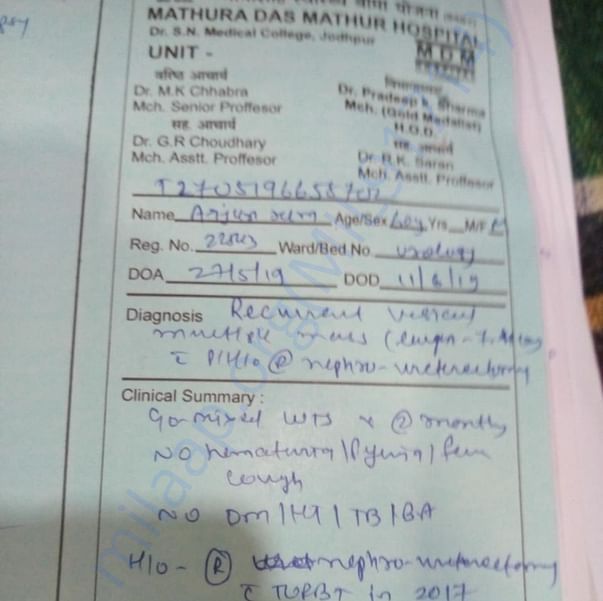 MATHURA DAS MATHUR HOSPITAL
Dr. S.N. Medical College, Jodhpur
MDM
UNIT -
वरिष्ठ आचार्य
Dr. M.K Chhabra
Mch. Senior Proffesor
Dr. Pradeep k. Sharma
Mch. (Gold Medalist)
H.O.D.
सह. आचार्य
Dr. G.R Choudhary
Mch. Asstt. Proffesor
सह. आचार्य
Dr. R.K. Saran
Mch. Asstt. Proffesor
Name Arjun ram Age/Sex Yrs. M/F M
Reg. No. Ward/Bed No. urology
DOA 27/5/19 DOD 11/6/19
Diagnosis Recurrent vesical
multiple mass
P/H/O (R) nephro-ureterectomy
Clinical Summary :
mixed LUTS x (2) months
NO hematuria / Pyuria /
cough
NO DM / HT / TB / BA
H/O - (R) nephro-ureterectomy
TURBT in 2017
milaap.org